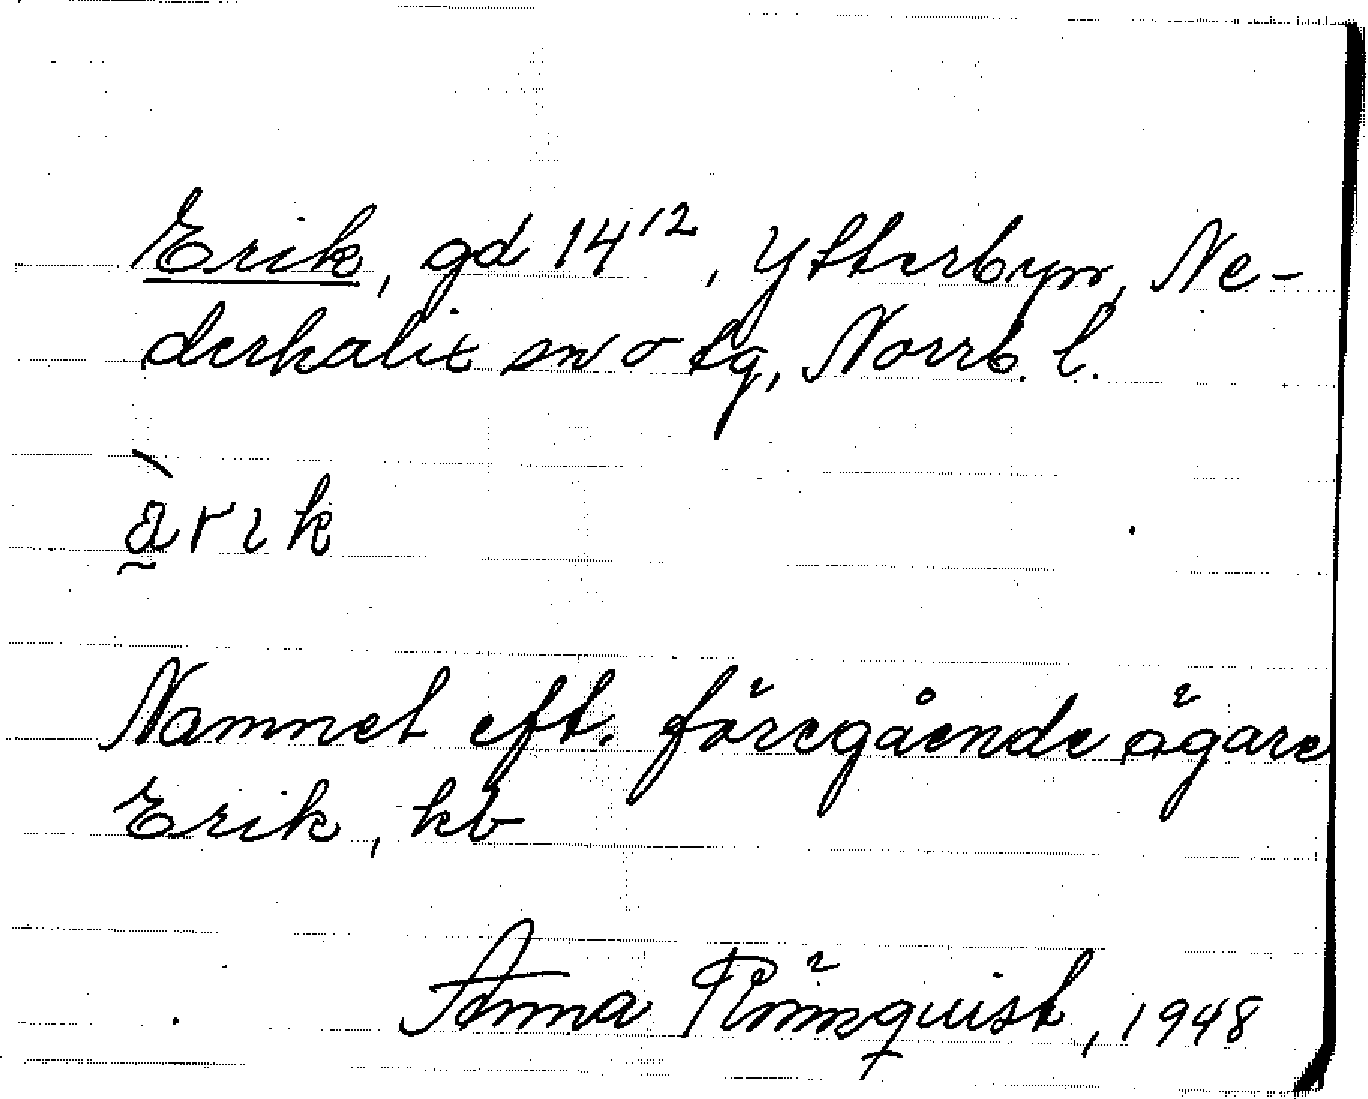 Erik, gd 14¹², Ytterbyn, Ne-
derkalix sn o tg, Norrb. l.
ä̀rık
Namnet eft. föregående ägare
Erik, kb
Anna Rönnquist, 1948